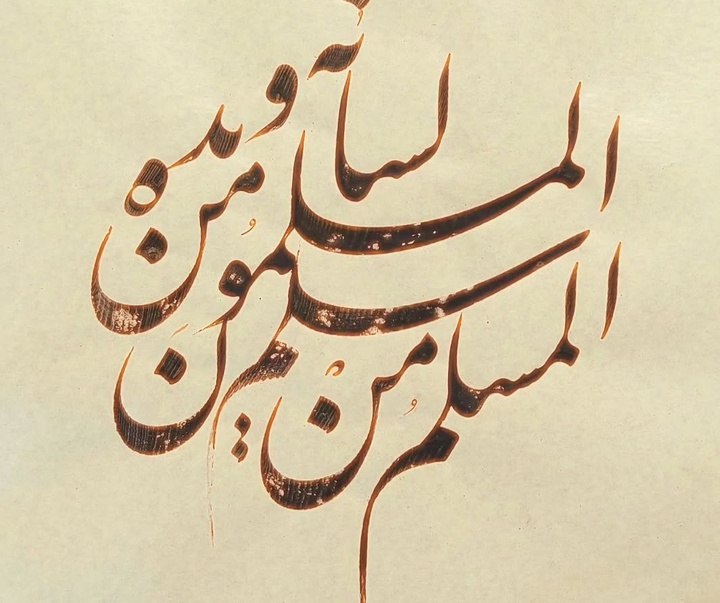 المسلم من
سلم المسلمون
من لسانه ويده